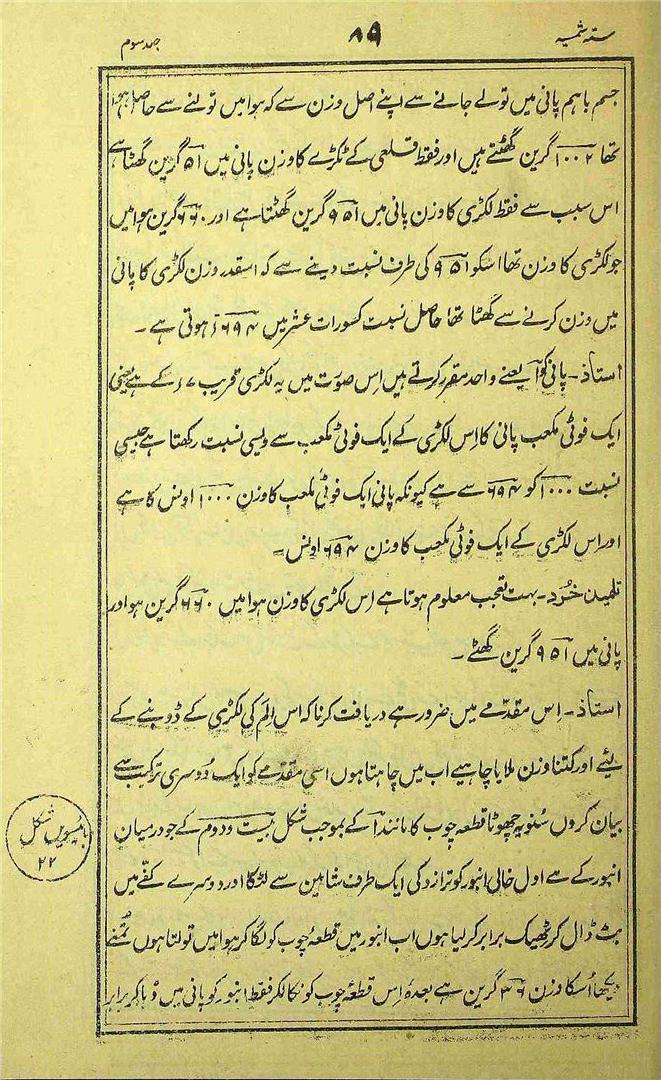 ستہ شمسیہ ۸۹ جلد سوم
جسم باہم پانی میں تولے جانے سے اپنے اصل وزن سے کہ ہوا میں تولنے سے حاصل ہوا
تھا ۱۰۰۲ گرین گھٹتے ہیں اور فقط قلعی کے ٹکڑے کا وزن پانی میں ۵۱ گرین گھٹتا ہے
اس سبب سے فقط لکڑی کا وزن پانی میں ۹۵۱ گرین گھٹتا ہے اور ۶۶۰ گرین ہوا میں
جو لکڑی کا وزن تھا اسکو ۹۵۱ کی طرف نسبت دینے سے کہ اسقدر وزن لکڑی کا پانی
میں وزن کرنے سے گھٹا تھا حاصل نسبت کسورات عشر میں ۶۹۴ء ہوتی ہے ۔
استاذ ۔ پانی کو ۱ یعنے واحد مقرر کرتے ہیں اس صورت میں یہ لکڑی قریب ۷ء کے ہے یعنی
ایک فوٹی مکعب پانی کا اِس لکڑی کے ایک فوٹی مکعب سے ویسی نسبت رکھتا ہے جیسی
نسبت ۱۰۰۰ کو ۶۹۴ سے ہے کیونکہ پانی ایک فوٹی مکعب کا وزن ۱۰۰۰ اونس کا ہے
اور اس لکڑی کے ایک فوٹی مکعب کا وزن ۶۹۴ اونس ۔
تلمیذ خُرد ۔ بہت تعجب معلوم ہوتا ہے اس لکڑی کا وزن ہوا میں ۶۶۰ گرین ہو اور
پانی میں ۹۵۱ گرین گھٹے ۔
استاذ ۔ اِس مقدّمے میں ضرور ہے دریافت کرنا کہ اس اِلم کی لکڑی کے ڈوبنے کے
لئے اور کتنا وزن ملایا چاہیے اب میں چاہتا ہوں اسی مقدمے کو ایک دُوسری ترکیب سے
بیان کروں سُنو یہ چھوٹا قطعہ چوب کا مانند ا کے بموجب شکل بیست و دوم کے جو درمیان
انبور کے ہے اول خالی انبور کو ترازو کی ایک طرف شاہین سے لٹکا اور دوسرے کفّے میں
بٹ ڈال کر ٹھیک برابر کر لیا ہوں اب انبور میں قطعۂ چوب کو لگا کر ہوا میں تولتا ہوں تُمنے
دیکھا اُسکا وزن ۳۶ گرین ہے بعدہٗ اِس قطعۂ چوب کو نکالکر فقط انبور کو پانی میں ڈباکر برابر
بائیسویں شکل
۲۲